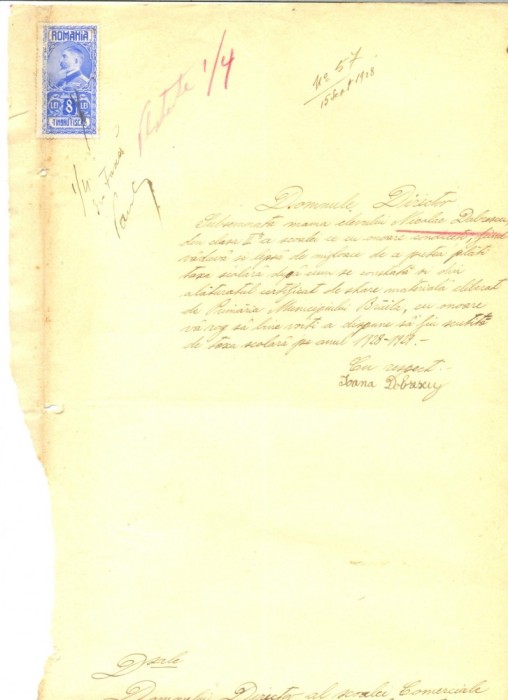 ROMANIA
LEI 8 LEI
TIMBRU FISCAL
1/4
No 57
1928
1/4
Domnule Director
Subsemnata mama elevului Nicolae
din clasa I-a a scoalei ce cu onoare conduceti, fiind
văduvă si lipsă de mijloace de a putea plăti
taxa scolară după cum se constată si din
alăturatul certificat de stare materială eliberat
de Primăria Municipiului Brăila, cu onoare
vă rog să bine voiti a dispune să fiu scutită
de taxa scolară pe anul 1928-1929.-
Cu respect.-
Ioana
D-sale
Domnului Director al scoalei Comerciale